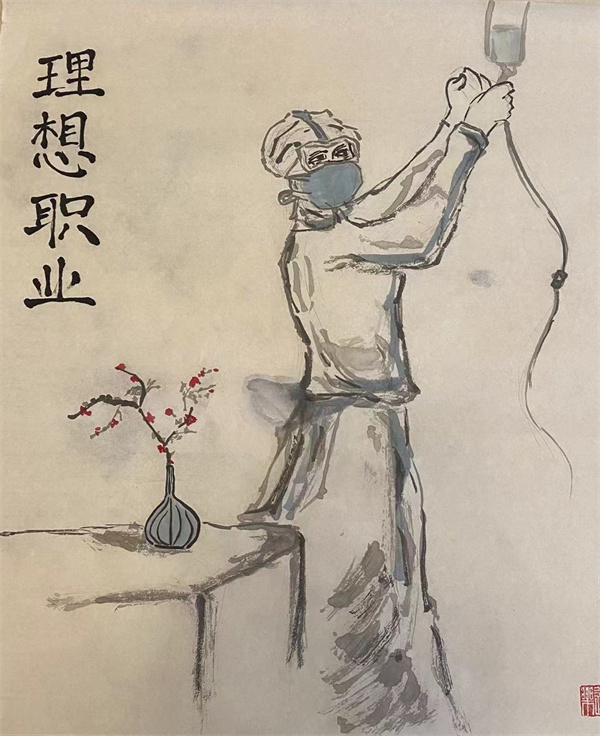 理想职业